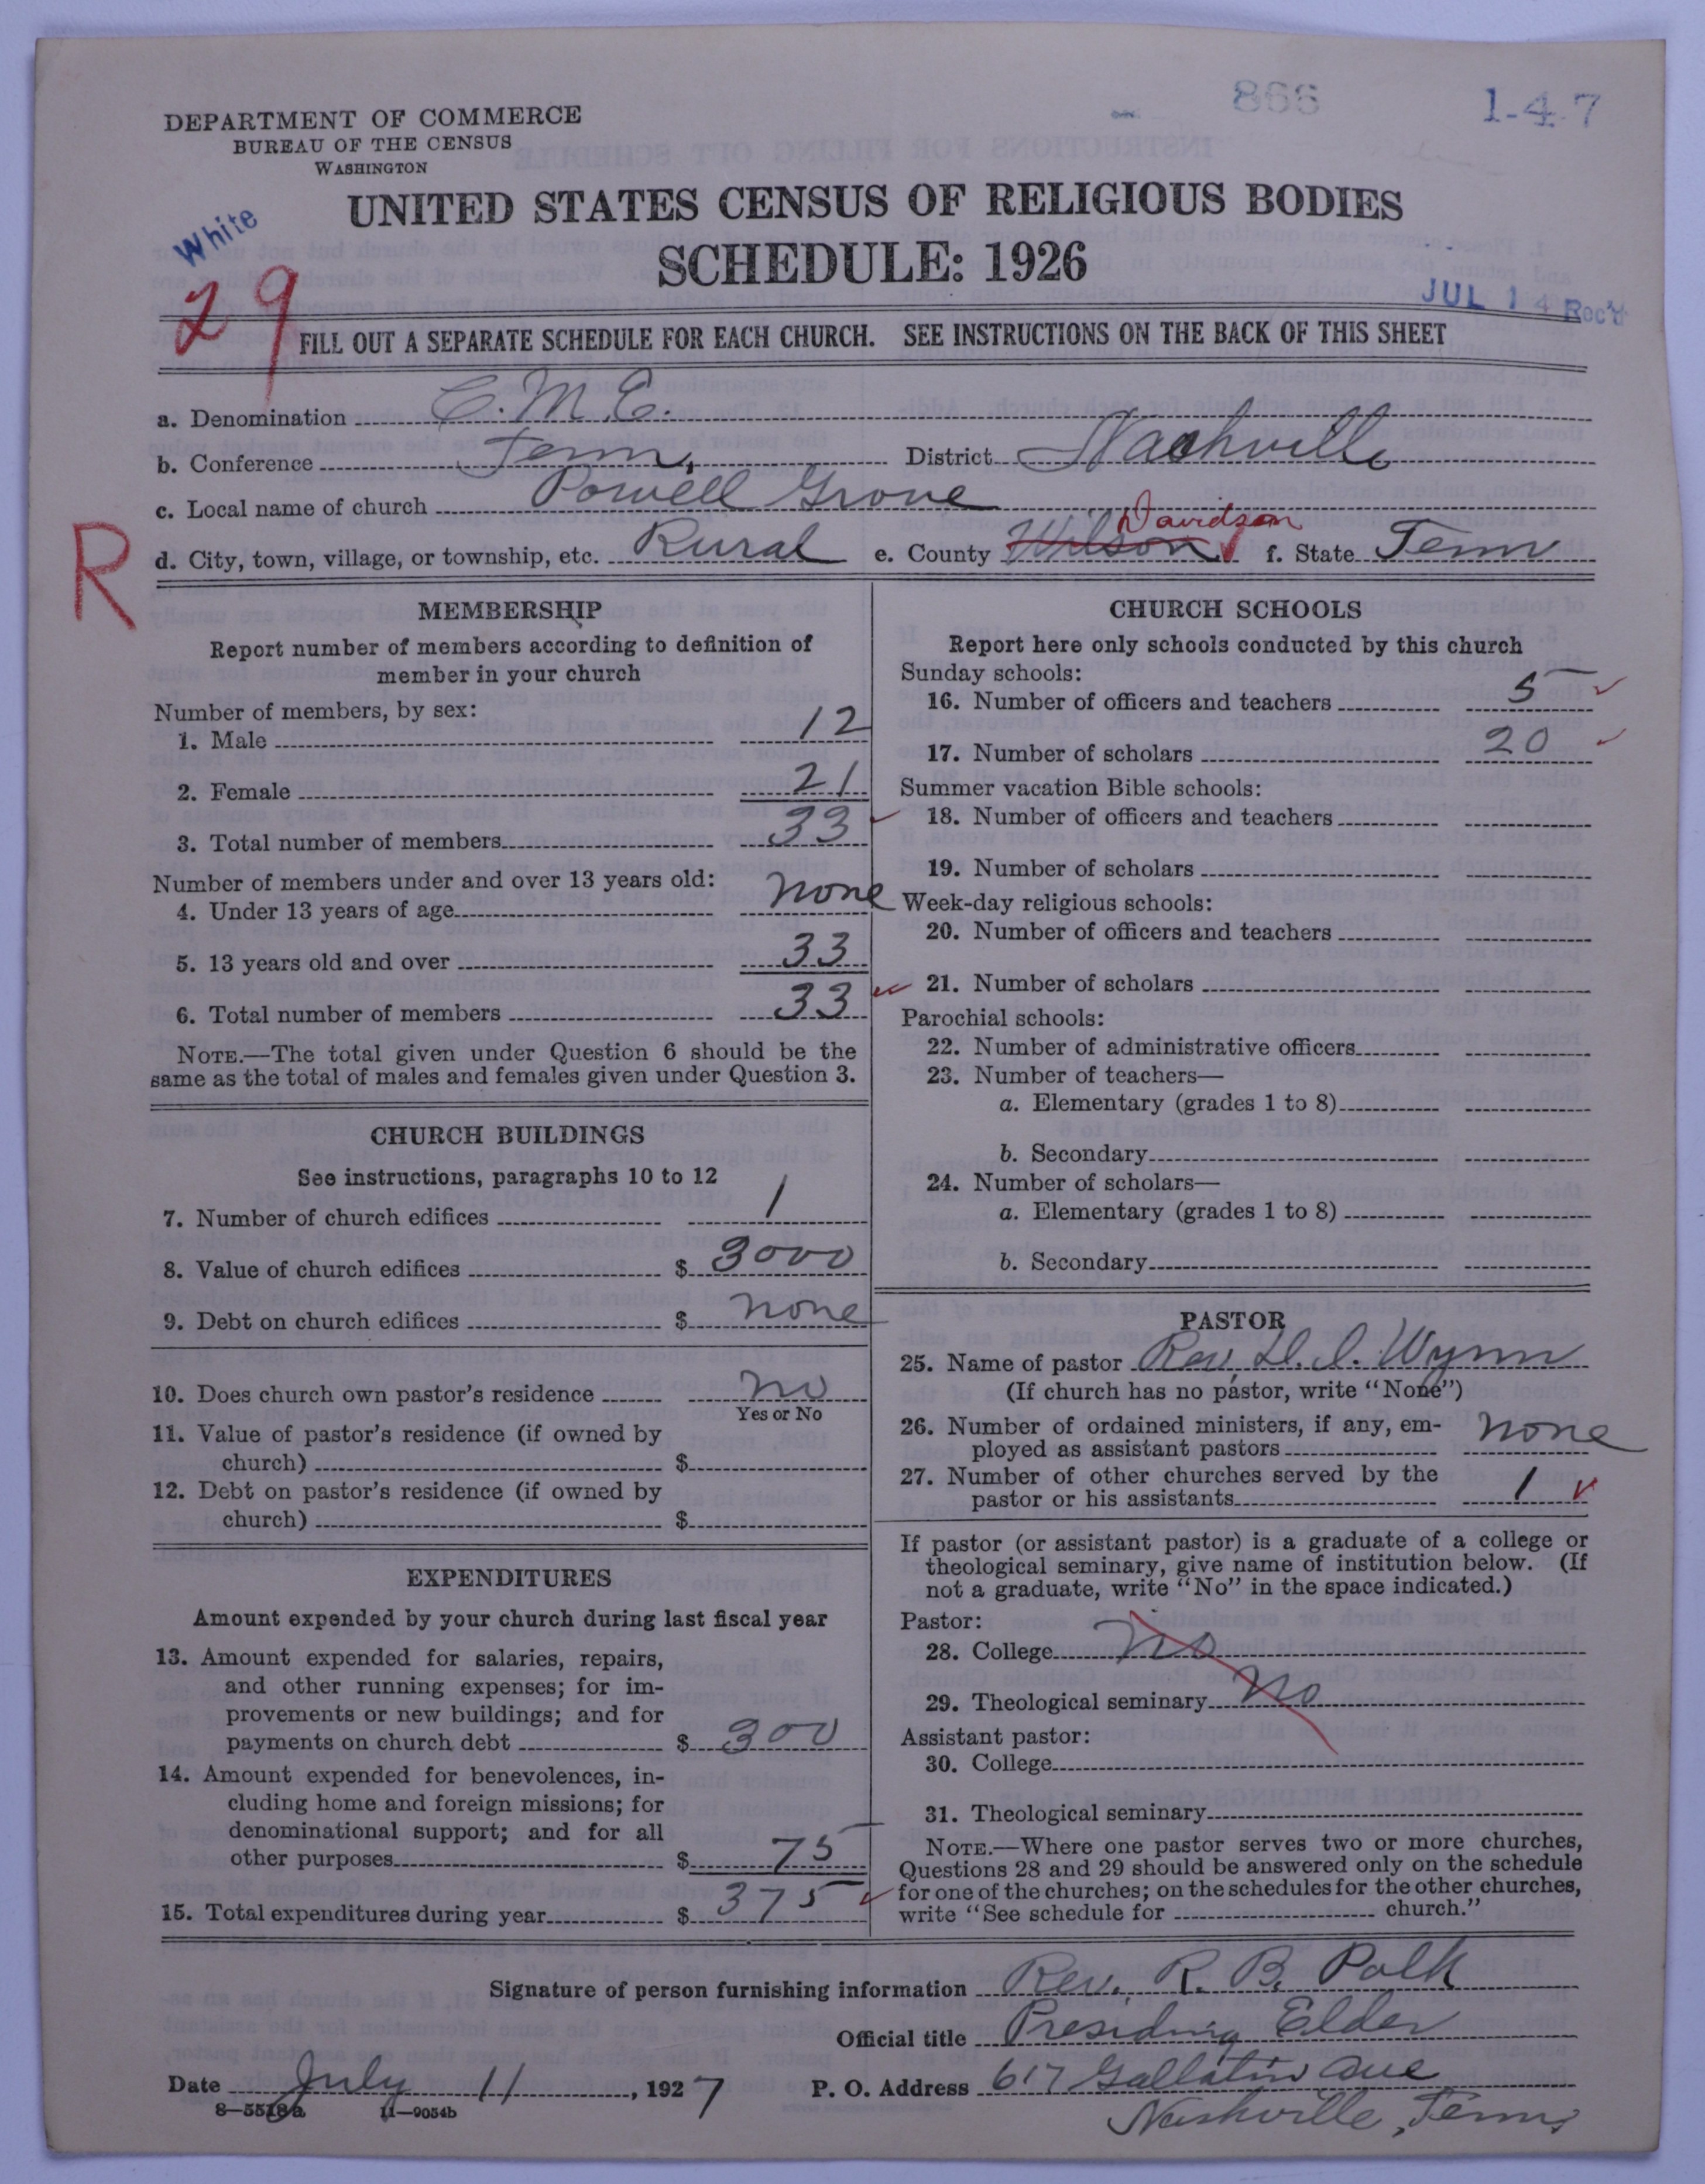 866
1-47
DEPARTMENT OF COMMERCE
BUREAU OF THE CENSUS
WASHINGTON
UNITED STATES CENSUS OF RELIGIOUS BODIES
SCHEDULE: 1926
White
29
JUL 14 Rec'd
FILL OUT A SEPARATE SCHEDULE FOR EACH CHURCH. SEE INSTRUCTIONS ON THE BACK OF THIS SHEET
a. Denomination C. M. E.
b. Conference Tenn, District Nashville
c. Local name of church Powell Grove
R
d. City, town, village, or township, etc. Rural e. County Wilson Davidson f. State Tenn
MEMBERSHIP
Report number of members according to definition of
member in your church
Number of members, by sex:
1. Male 12
2. Female 21
3. Total number of members 33
Number of members under and over 13 years old:
4. Under 13 years of age none
5. 13 years old and over 33
6. Total number of members 33
NOTE.—The total given under Question 6 should be the
same as the total of males and females given under Question 3.
CHURCH BUILDINGS
See instructions, paragraphs 10 to 12
7. Number of church edifices 1
8. Value of church edifices $ 3000
9. Debt on church edifices $ none
10. Does church own pastor's residence no
Yes or No
11. Value of pastor's residence (if owned by
church) $
12. Debt on pastor's residence (if owned by
church) $
EXPENDITURES
Amount expended by your church during last fiscal year
13. Amount expended for salaries, repairs,
and other running expenses; for im-
provements or new buildings; and for
payments on church debt $ 300
14. Amount expended for benevolences, in-
cluding home and foreign missions; for
denominational support; and for all
other purposes $ 75
15. Total expenditures during year $ 375
CHURCH SCHOOLS
Report here only schools conducted by this church
Sunday schools:
16. Number of officers and teachers 5
17. Number of scholars 20
Summer vacation Bible schools:
18. Number of officers and teachers
19. Number of scholars
Week-day religious schools:
20. Number of officers and teachers
21. Number of scholars
Parochial schools:
22. Number of administrative officers
23. Number of teachers—
a. Elementary (grades 1 to 8)
b. Secondary
24. Number of scholars—
a. Elementary (grades 1 to 8)
b. Secondary
PASTOR
25. Name of pastor Rev. D. I. Wynn
(If church has no pastor, write "None")
26. Number of ordained ministers, if any, em-
ployed as assistant pastors none
27. Number of other churches served by the
pastor or his assistants 1
If pastor (or assistant pastor) is a graduate of a college or
theological seminary, give name of institution below. (If
not a graduate, write "No" in the space indicated.)
Pastor:
28. College no
29. Theological seminary no
Assistant pastor:
30. College
31. Theological seminary
NOTE.—Where one pastor serves two or more churches,
Questions 28 and 29 should be answered only on the schedule
for one of the churches; on the schedules for the other churches,
write "See schedule for church."
Signature of person furnishing information Rev. R. B. Polk
Official title Presiding Elder
Date July 11, 1927 P. O. Address 617 Gallatin Ave
8—5518a 11—9054b
Nashville, Tenn,